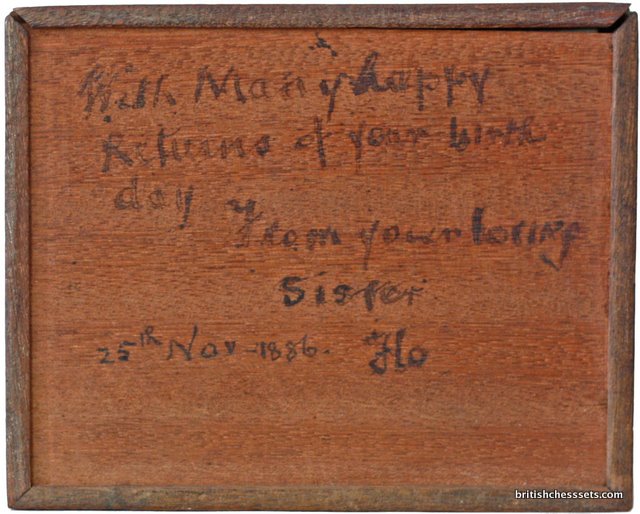 With Many happy
Returns of your birth
day
From your loving
Sister
25th Nov - 1886. Flo
britishchesssets.com